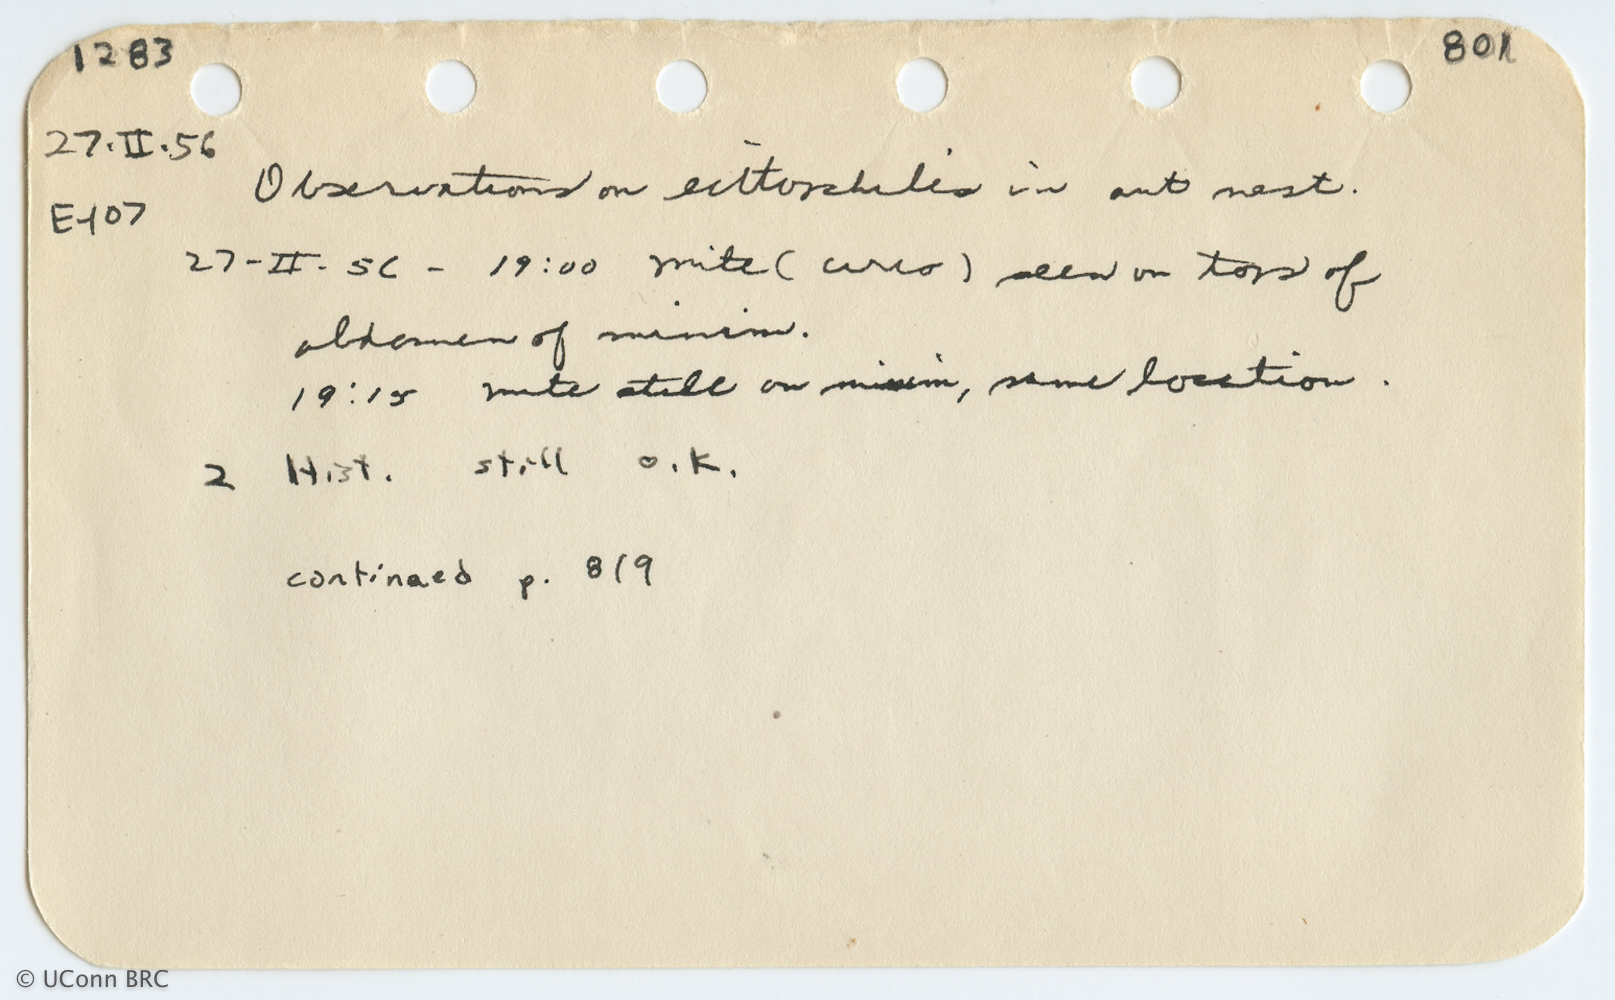 1283 801
27.II.56
Observations on ecitophiles in ant nest.
E-107
27-II-56 - 19:00 mite (circo) seen on top of
abdomen of minim.
19:15 mite still on minim, same location.
2 Hist. still o.k.
continued p. 819
© UConn BRC